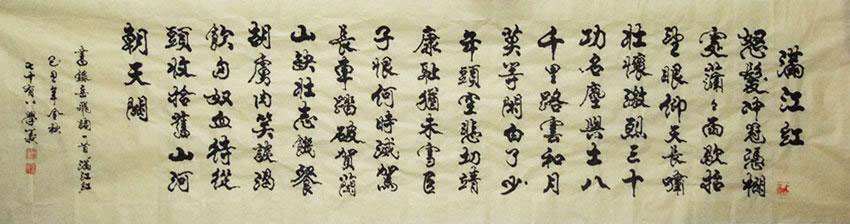 滿江紅
怒髮冲冠憑欄
處瀟々雨歇抬
望眼仰天長嘯
壯懷激烈三十
功名塵與土八
千里路雲和月
莫等閑白了少
年頭空悲切靖
康恥猶未雪臣
子恨何時滅駕
長車踏破賀蘭
山缺壯志饑餐
胡虜肉笑談渴
飲匈奴血待從
頭收拾舊山河
朝天闕
書錄岳飛詞一首滿江紅
己丑年金秋
七十有八學義